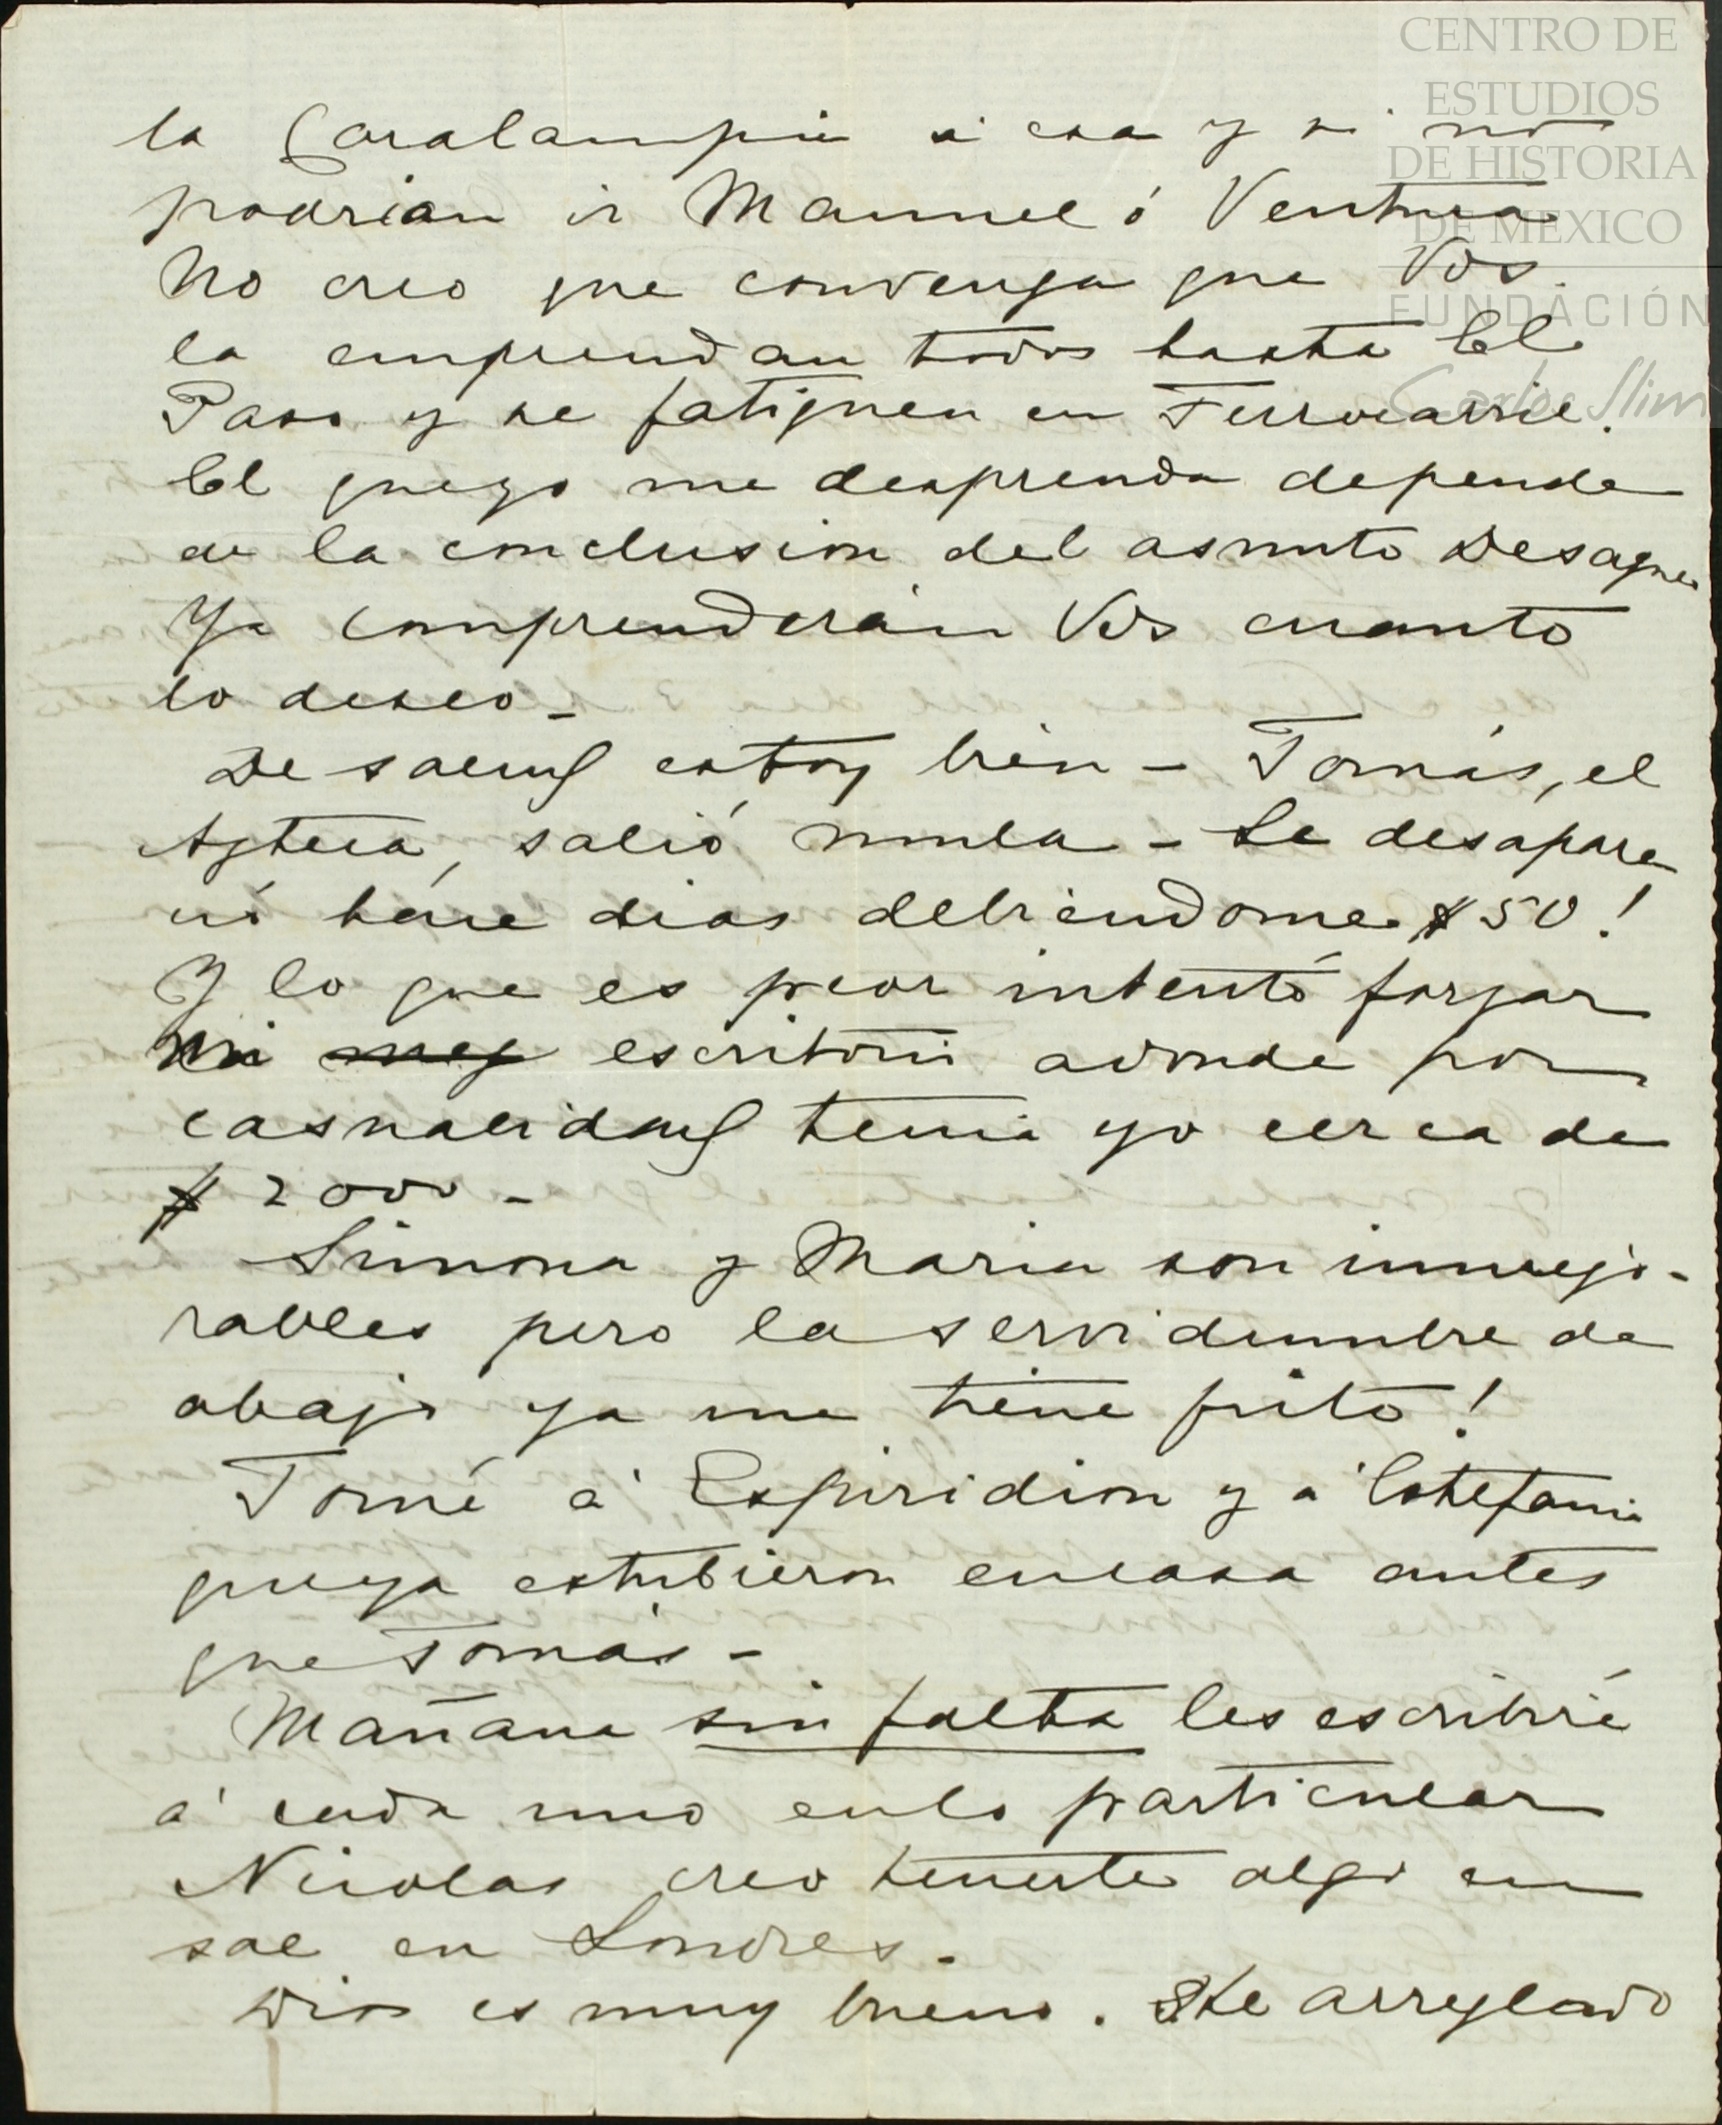 CENTRO DE
ESTUDIOS
DE HISTORIA
DE MEXICO
FUNDACIÓN
Carlos Slim
la Caralampia á esa y si no
podrian ir Manuel ó Ventura
No creo que convenga que Vds.
la emprendan todos hasta El
Paso y se fatiguen en Ferrocarril.
El que yo me desprenda depende
de la conclusion del asunto Desague
Ya comprenderán Vds cuanto
lo deseo_
De salud estoy bien – Tomás, el
Azteca, salió mula – Se desapare
ció háce dias debiendome $50!
Y lo que es peor intentó forzar
mi escritorio adonde por
casualidad tenia yo cerca de
$2000 –
Simona y Maria son inmejo-
rables pero la servidumbre de
abajo ya me tiene frito!
Tomé á Espiridion y á Estefania
que ya estubieron en casa antes
que Tomás –
Mañana sin falta les escribiré
á cada uno en lo particular
Nicolas creo tenerte algo en
sal en Londres.
Dios es muy bueno. He arreglado